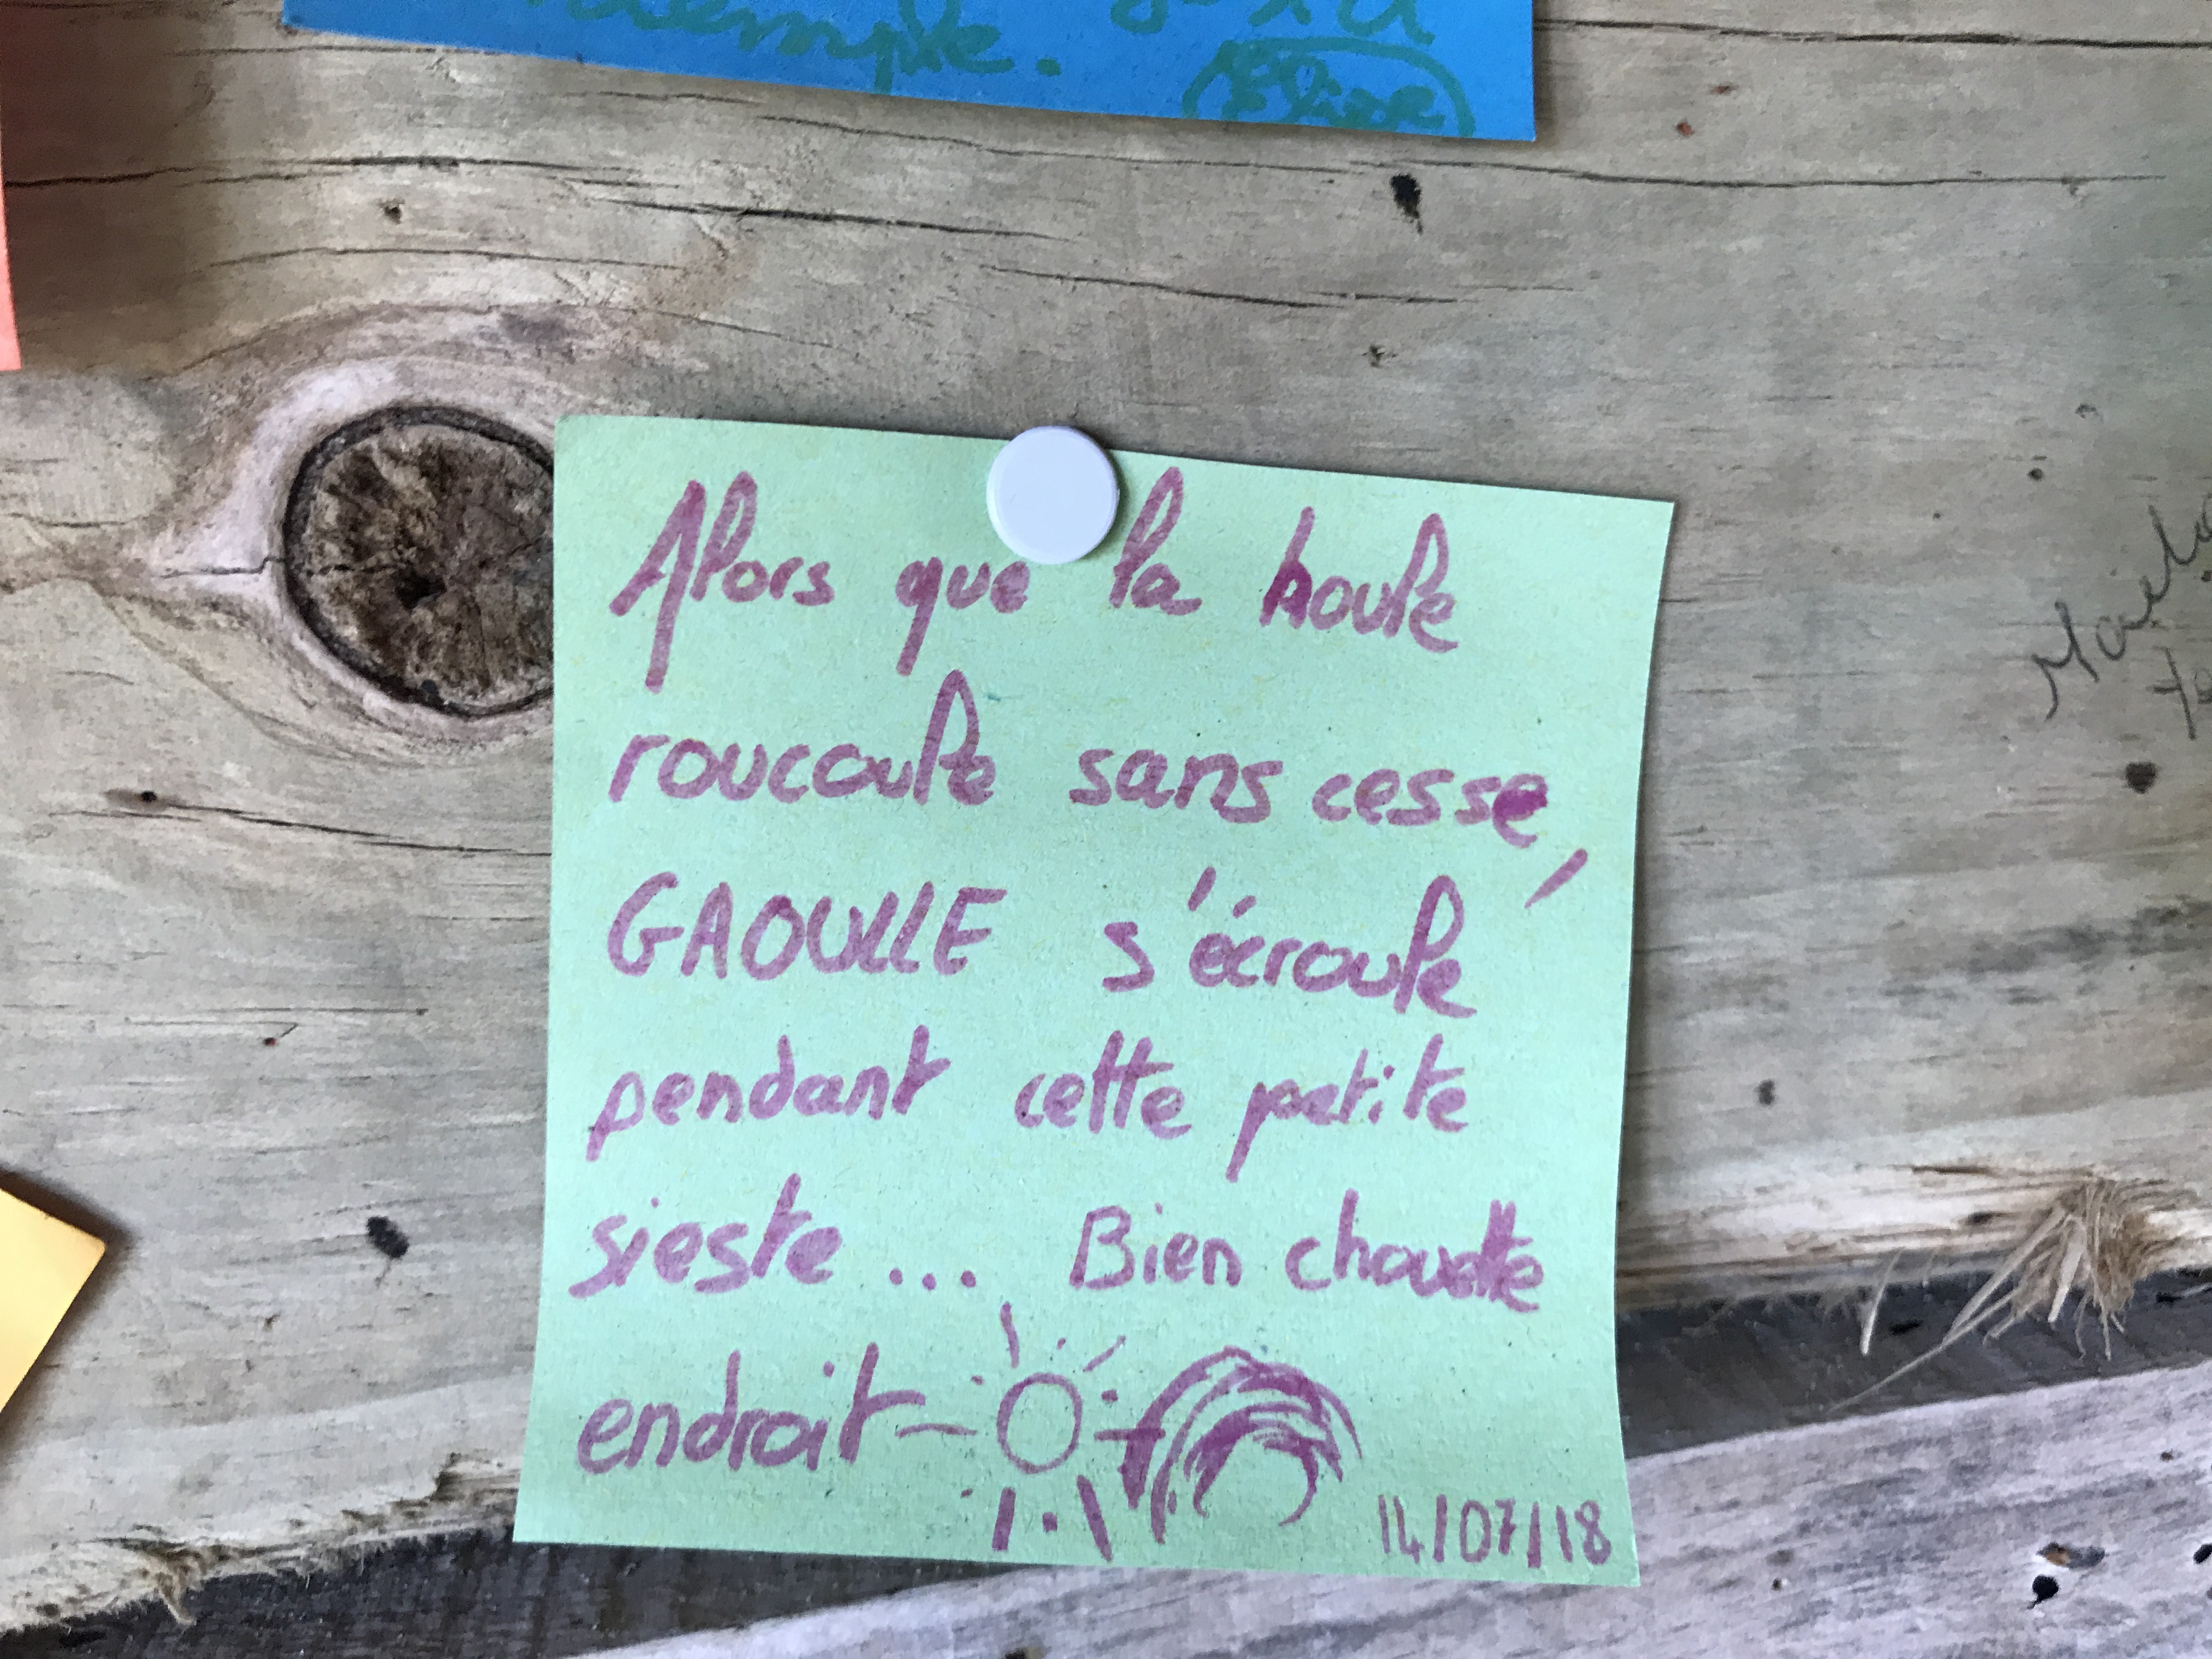 Alors que la houle
roucoule sans cesse,
GAOULLE s'écroule
pendant cette petite
sieste... Bien chouette
endroit
14/07/18